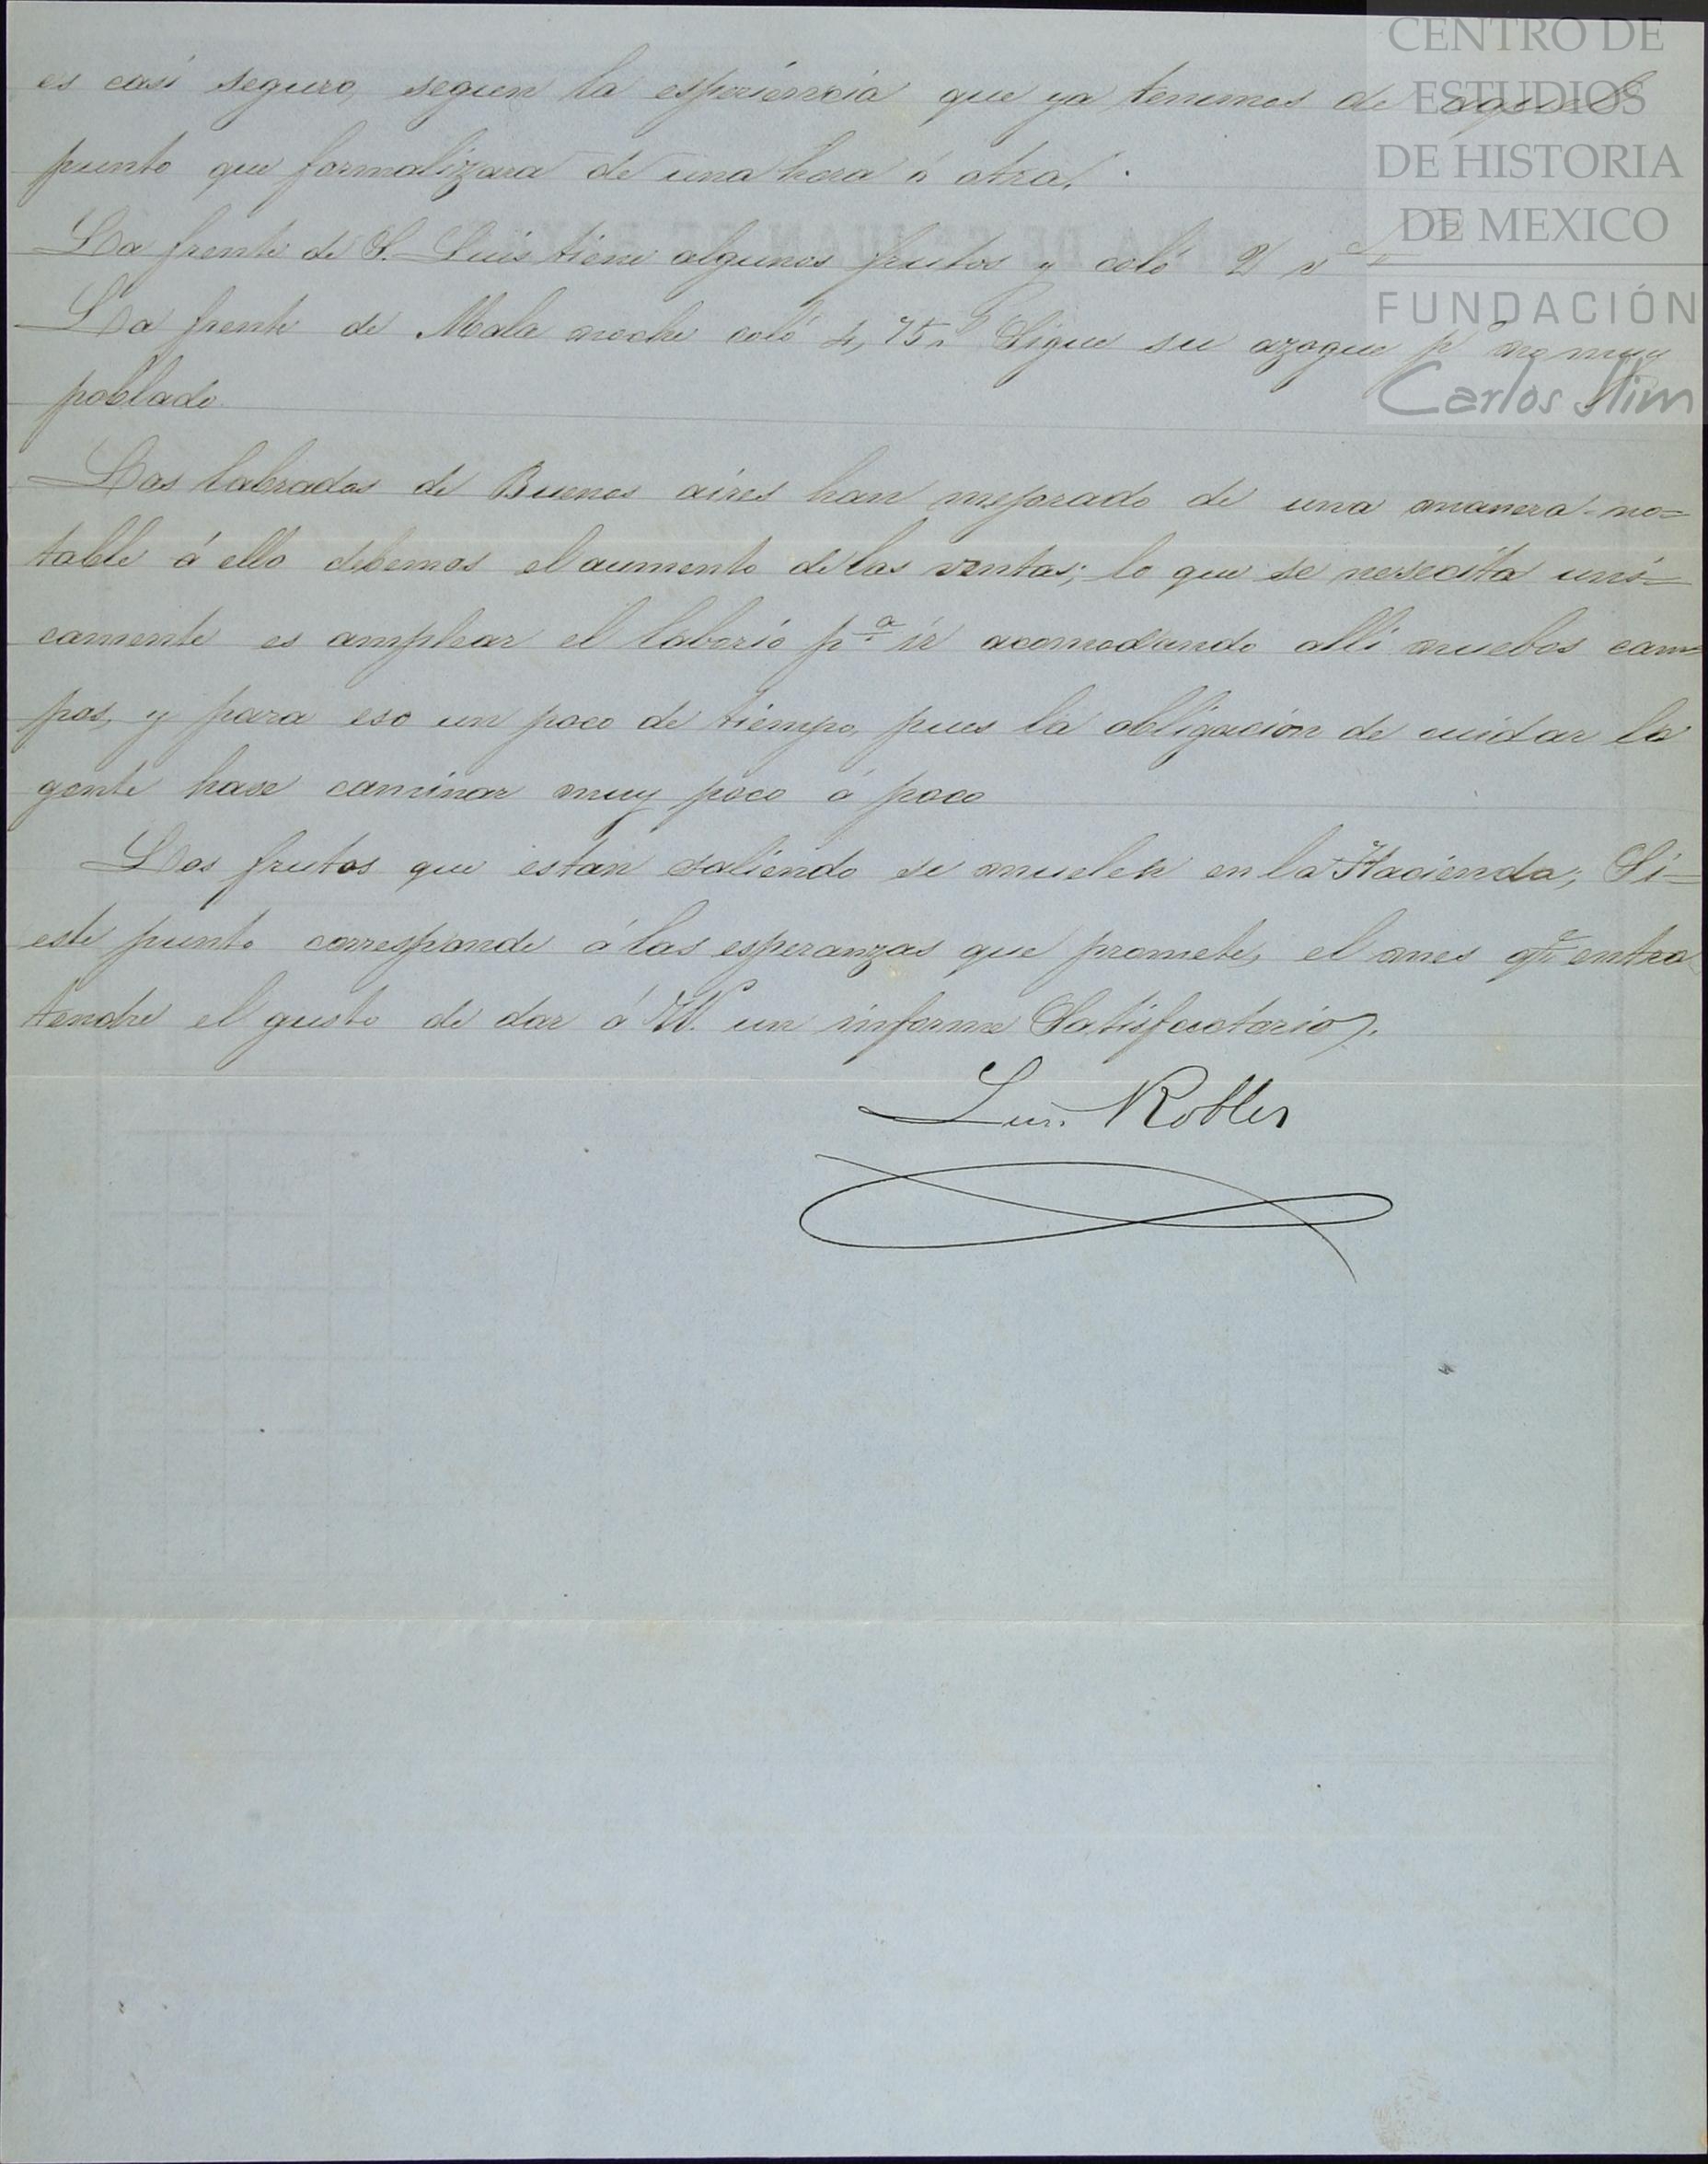 es casi seguro, segun la esperiencia que ya tenemos de aquel
punto que formalizara de una hora á otra.
La frente de S. Luis tiene algunos frutos y coló 2 v.s
La frente de Mala noche coló 4,75. Sigue su azogue p.o no muy
poblado.
Los labrados de Buenos aires han mejorado de una manera no=
table á ello debemos el aumento de las ventas; lo que se nesecita uni=
camente es amplear el laborio p.a ir acomodando alli nuebos cam=
pos, y para eso un poco de tiempo, pues la obligacion de cuidar la
gente hase caminar muy poco á poco
Los frutos que estan saliendo se muelen en la Hacienda; Si=
este punto corresponde á las esperanzas que promete, el mes q.e entra
tendre el gusto de dar á W. un informe Satisfactorio.
Luis Robles
CENTRO DE
ESTUDIOS
DE HISTORIA
DE MEXICO
FUNDACIÓN
Carlos Slim